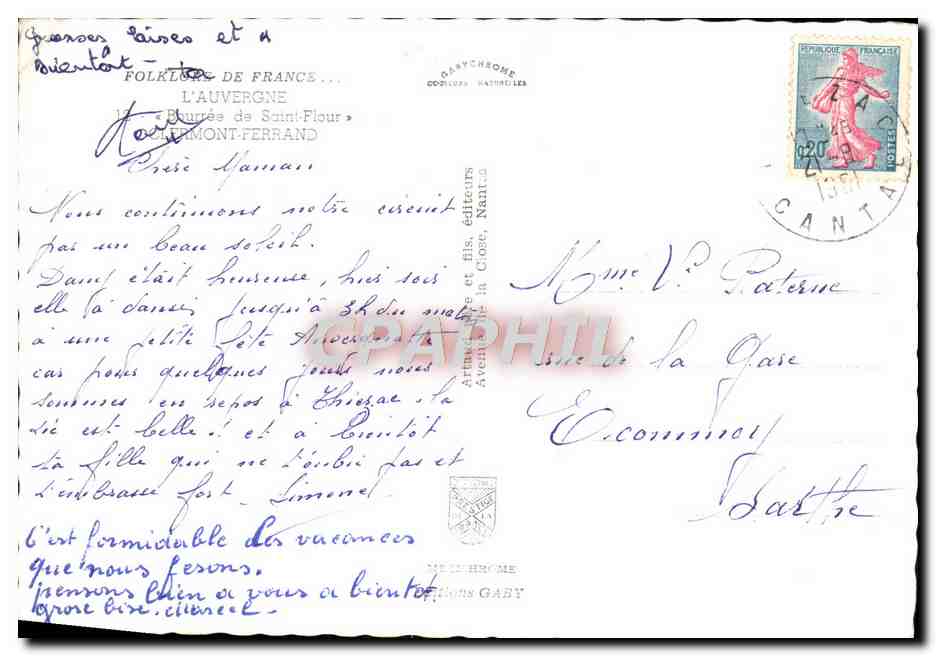 Grosses bises et à
Bientôt -
FOLKLORE DE FRANCE...
L'AUVERGNE
« Bourrée de Saint-Flour »
CLERMONT-FERRAND
GABYCHROME
COULEURS NATURELLES
REPUBLIQUE FRANÇAISE
0,20
POSTES
21-8
1961
CANTAL
Chère Maman
Nous continuons notre circuit
par un beau soleil.
Dany était heureuse, hier soir
elle à dansé jusqu'à 3h du matin
à une petite fête Auvergnatte
car pour quelques jours nous
sommes en repos à Thiezac. la
vie est belle! et à bientôt
ta fille qui ne t'oublie pas et
t'embrasse fort. Simone
C'est formidable les vacances
que nous fesons.
pensons bien a vous a bientot
grose bise. Marcel -
Artaud père et fils, éditeurs
Avenue de la Close, Nantes
Mme Ve Paterne
rue de la Gare
Ecommoy
Sarthe
MEXICHROME
Editions GABY
CPAPHIL